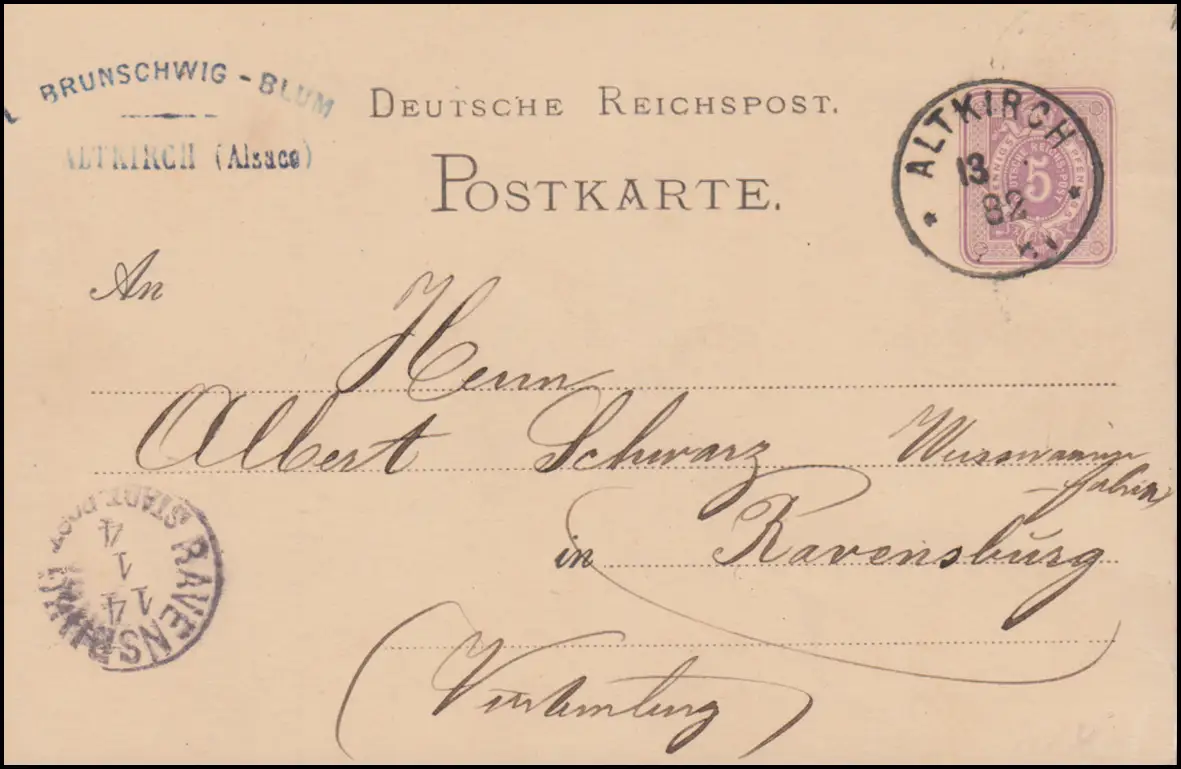 BRUNSCHWIG-BLUM
ALTKIRCH (Alsace)
DEUTSCHE REICHSPOST.
POSTKARTE.
ALTKIRCH
13
82
5
DEUTSCHE REICHS-POST
An
Herrn
Albert Schwarz
in Ravensburg
(Württemberg)
RAVENSBURG
STADT-POST
14
1
4